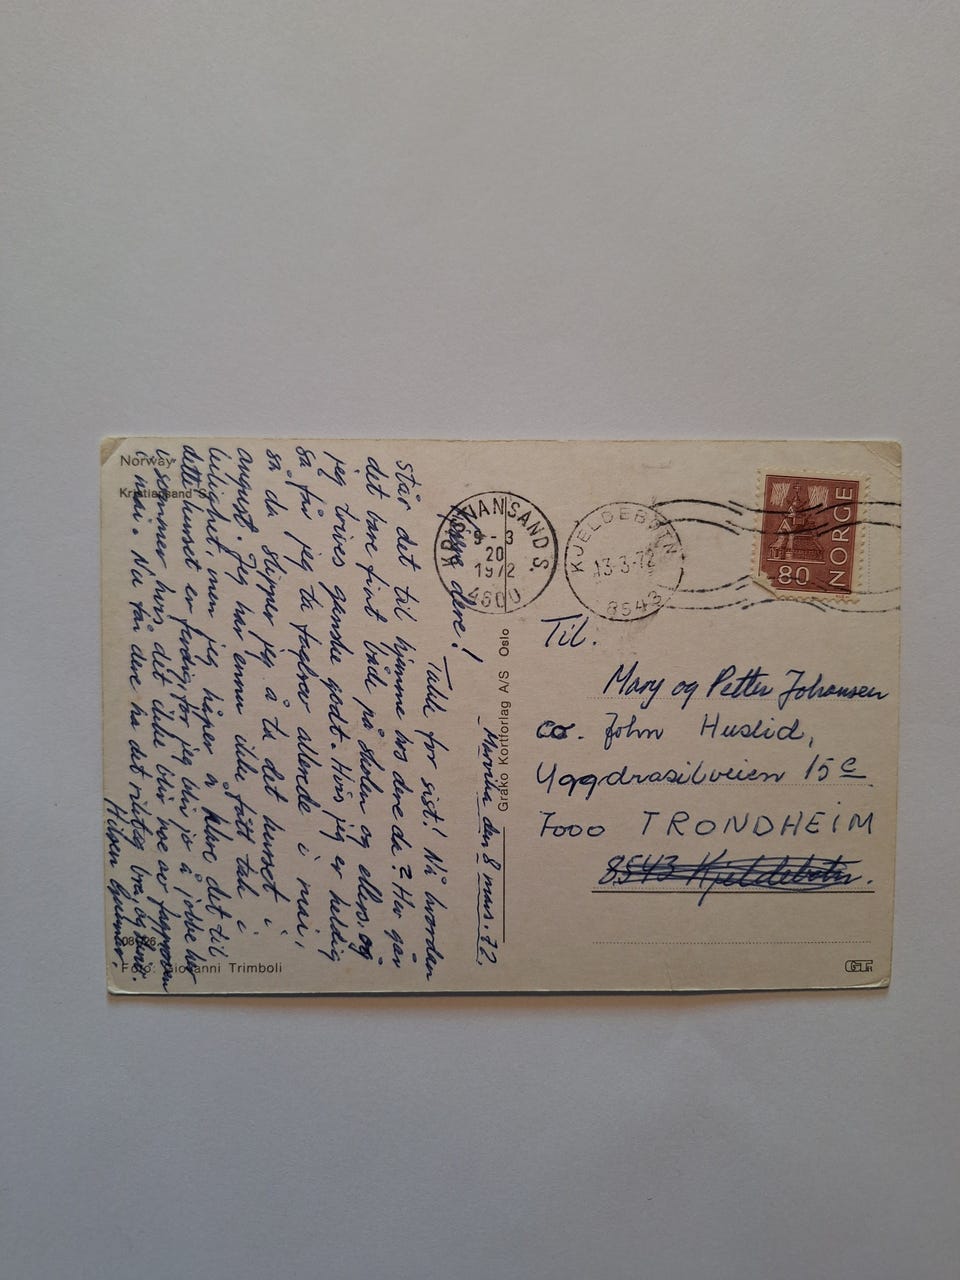 Norway
Kristiansand S.
Marvika den 8 mars. 72.
Kjære dere!
Takk for sist! Nå hvordan
står det til hjemme hos dere da? Her går
det bare fint både på skolen og ellers, og
jeg trives ganske godt. Hvis jeg er heldig
så får jeg ta fagprøve allerede i mai,
så da slipper jeg å ta det kurset i
august. Jeg har ennu ikke fått tak i
men jeg håper å klare det til
dette kurset er ferdig, for jeg blir jo å jobbe her
i sommer hvis det ikke blir noe av fagprøven
i mai. Nu får dere ha det riktig bra, og
Hilsen Gunnar.
Foto: Giovanni Trimboli
Grako Kortforlag A/S Oslo
KRISTIANSAND S.
9-3
20
1972
4600
KJELDEBOTN
13-3-72
8543
NORGE
80
Til.
Mary og Petter Johansen
co. John Huslid,
Yggdrasilveien 15c
7000 TRONDHEIM
8543 Kjeldebotn.